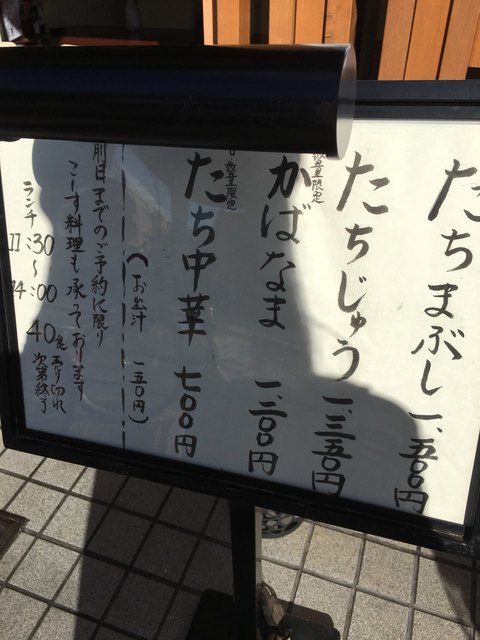 たちまぶし 一、五〇〇円
たちじゅう 一、三五〇円
数量限定
かばなま 一、二〇〇円
数量限定
たち中華 七〇〇円
(お出汁 一五〇円)
前日までのご予約に限り
こーす料理も承っております
ランチ 11:30〜14:00
40食 売り切れ次第終了